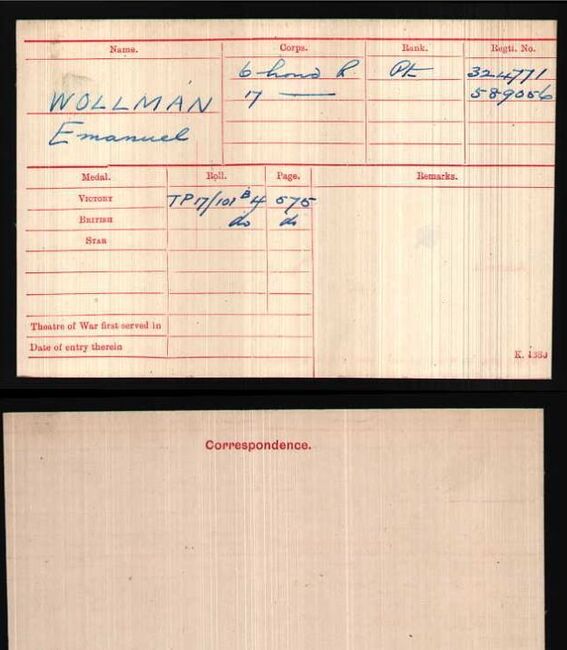 Name. Corps. Rank. Regtl. No.
WOLLMAN 6 Lond R. Pte 324771
Emanuel 17 —— 589056
Medal. Roll. Page. Remarks.
VICTORY TP17/101 B4 575
BRITISH do do
STAR
Theatre of War first served in
Date of entry therein
K. 1380
Correspondence.